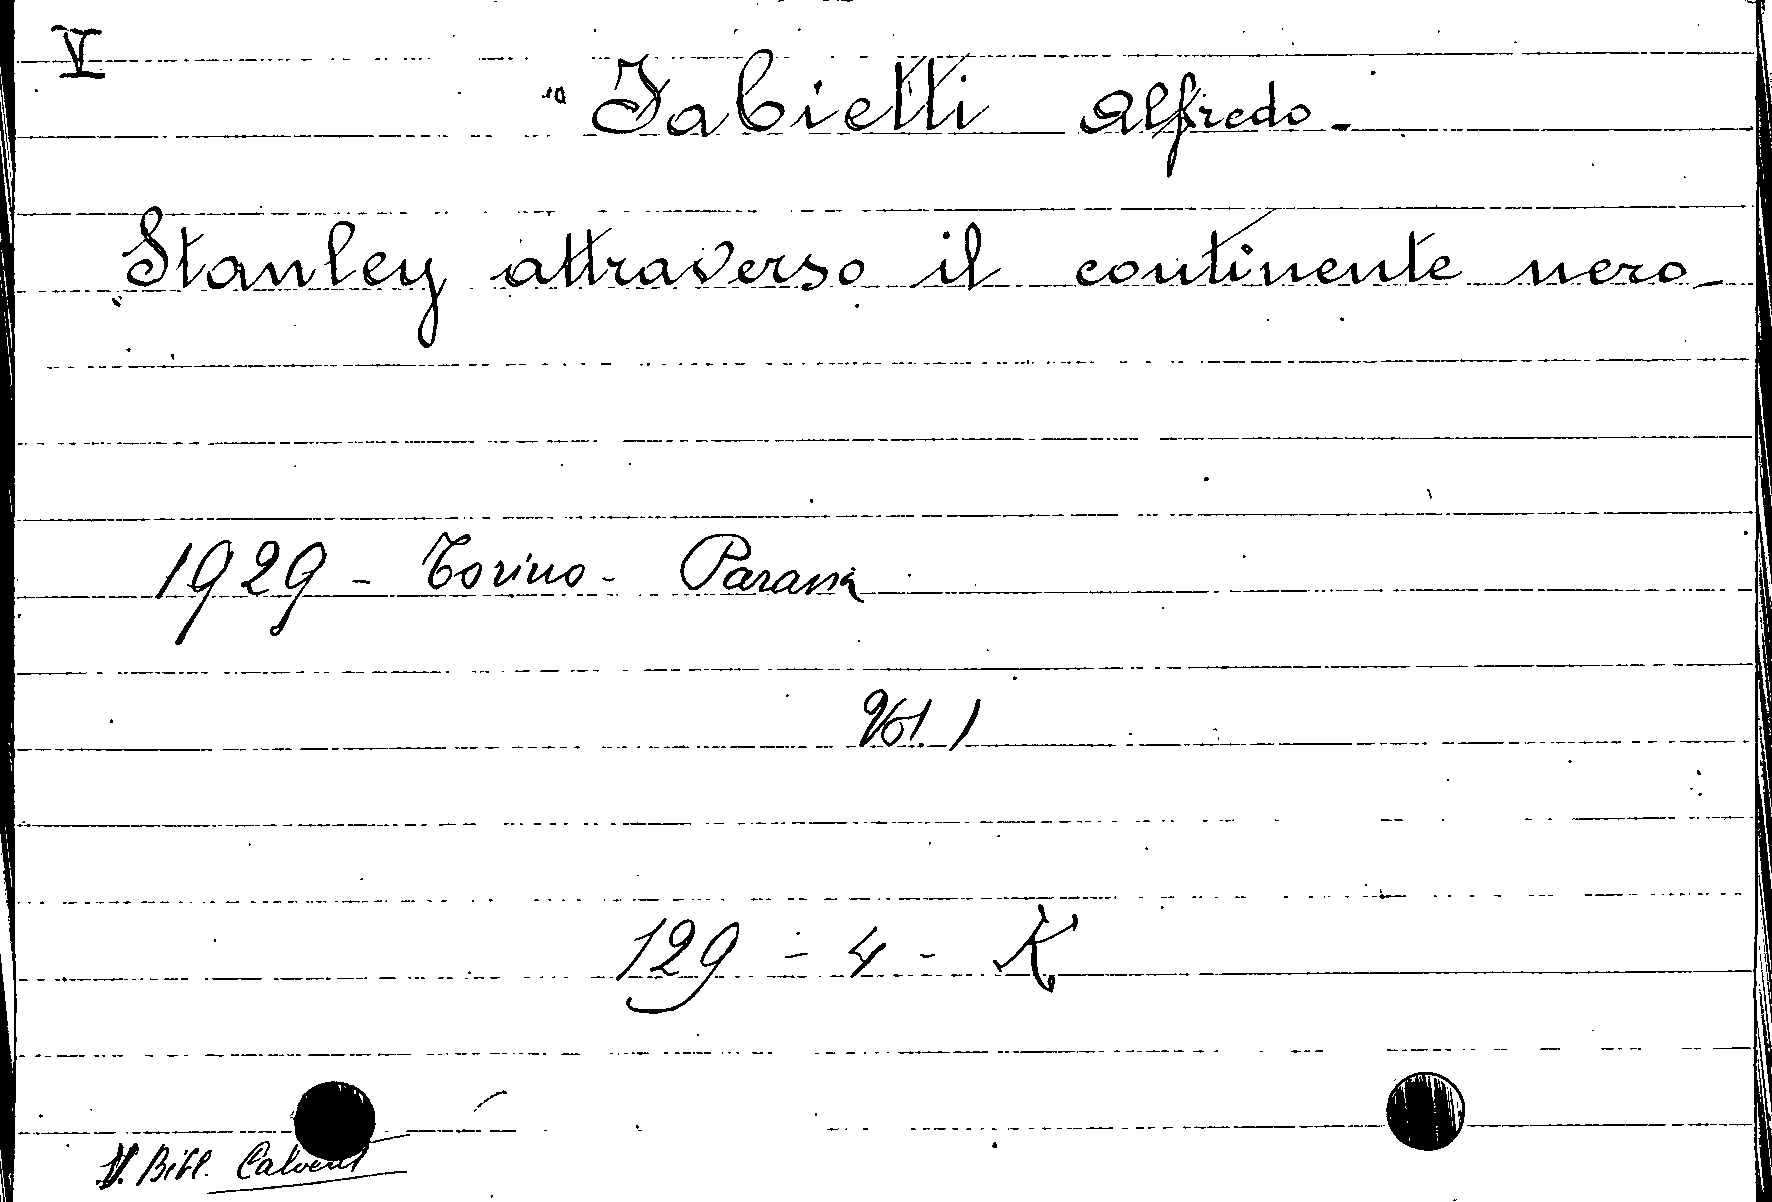 V
Fabietti Alfredo.
Stanley attraverso il continente nero.
1929 - Torino - Paravia
Vol. 1
129 - 4 - K
V. Bibl.